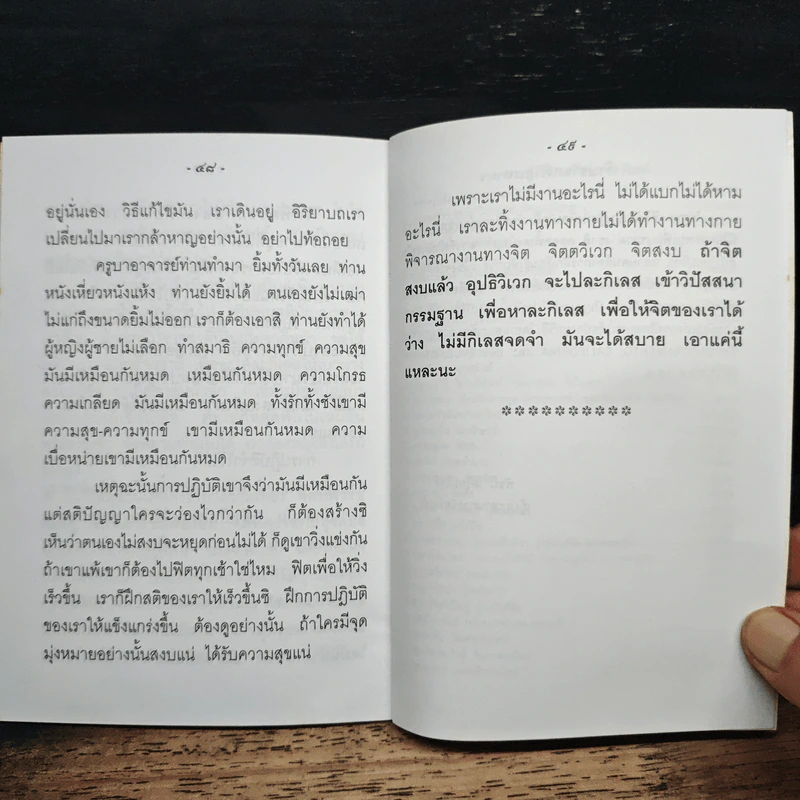 - ๔๘ -
อยู่นั่นเอง วิธีแก้ไขมัน เราเดินอยู่ อิริยาบถเรา
เปลี่ยนไปมาเรากล้าหาญอย่างนั้น อย่าไปท้อถอย
ครูบาอาจารย์ท่านทำมา ยิ้มทั้งวันเลย ท่าน
หนังเหี่ยวหนังแห้ง ท่านยังยิ้มได้ ตนเองยังไม่เฒ่า
ไม่แก่ถึงขนาดยิ้มไม่ออก เราก็ต้องเอาสิ ท่านยังทำได้
ผู้หญิงผู้ชายไม่เลือก ทำสมาธิ ความทุกข์ ความสุข
มันมีเหมือนกันหมด เหมือนกันหมด ความโกรธ
ความเกลียด มันมีเหมือนกันหมด ทั้งรักทั้งชังเขามี
ความสุข-ความทุกข์ เขามีเหมือนกันหมด ความ
เบื่อหน่ายเขามีเหมือนกันหมด
เหตุฉะนั้นการปฏิบัติเขาจึงว่ามันมีเหมือนกัน
แต่สติปัญญาใครจะว่องไวกว่ากัน ก็ต้องสร้างซิ
เห็นว่าตนเองไม่สงบจะหยุดก่อนไม่ได้ ก็ดูเขาวิ่งแข่งกัน
ถ้าเขาแพ้เขาก็ต้องไปฟิตทุกเช้าใช่ไหม ฟิตเพื่อให้วิ่ง
เร็วขึ้น เราก็ฝึกสติของเราให้เร็วขึ้นซิ ฝึกการปฏิบัติ
ของเราให้แข็งแกร่งขึ้น ต้องดูอย่างนั้น ถ้าใครมีจุด
มุ่งหมายอย่างนั้นสงบแน่ ได้รับความสุขแน่
- ๔๙ -
เพราะเราไม่มีงานอะไรนี่ ไม่ได้แบกไม่ได้หาม
อะไรนี่ เราละทิ้งงานทางกายไม่ได้ทำงานทางกาย
พิจารณางานทางจิต จิตตวิเวก จิตสงบ ถ้าจิต
สงบแล้ว อุปธิวิเวก จะไปละกิเลส เข้าวิปัสสนา
กรรมฐาน เพื่อหาละกิเลส เพื่อให้จิตของเราได้
ว่าง ไม่มีกิเลสจดจำ มันจะได้สบาย เอาแค่นี้
แหละนะ
**********